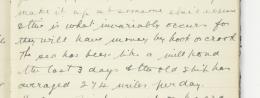 make it up at someone else's expense
& this is what invariably occurs for
they will have money by hook or crook
The sea has been like a mill pond
the last 3 days & the old ship has
averaged 274 miles per day.